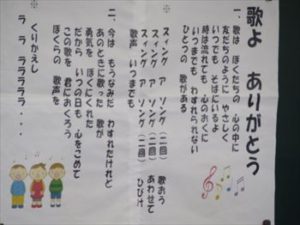 歌よ ありがとう
一、歌は ぼくたちの 心の中に
友だちのように やさしく
いつでも そばにいるよ
時は流れても 心のおくに
いつまでも わすれられない
ひとつの 歌がある
※
スィング ア ソング(二回) 歌おう
スィング ア ソング(二回) あわせて
スィング ア ソング(二回) ひびけ
歌声 いつまでも
二、今は もうなみだ わすれたけれど
あのときに歌った 歌が
勇気を ぼくにくれた
だから いつの日も 心をこめて
この歌を 君におくろう
ぼくらの 歌声を
※ くりかえし
ラ ラ ララララ・・・